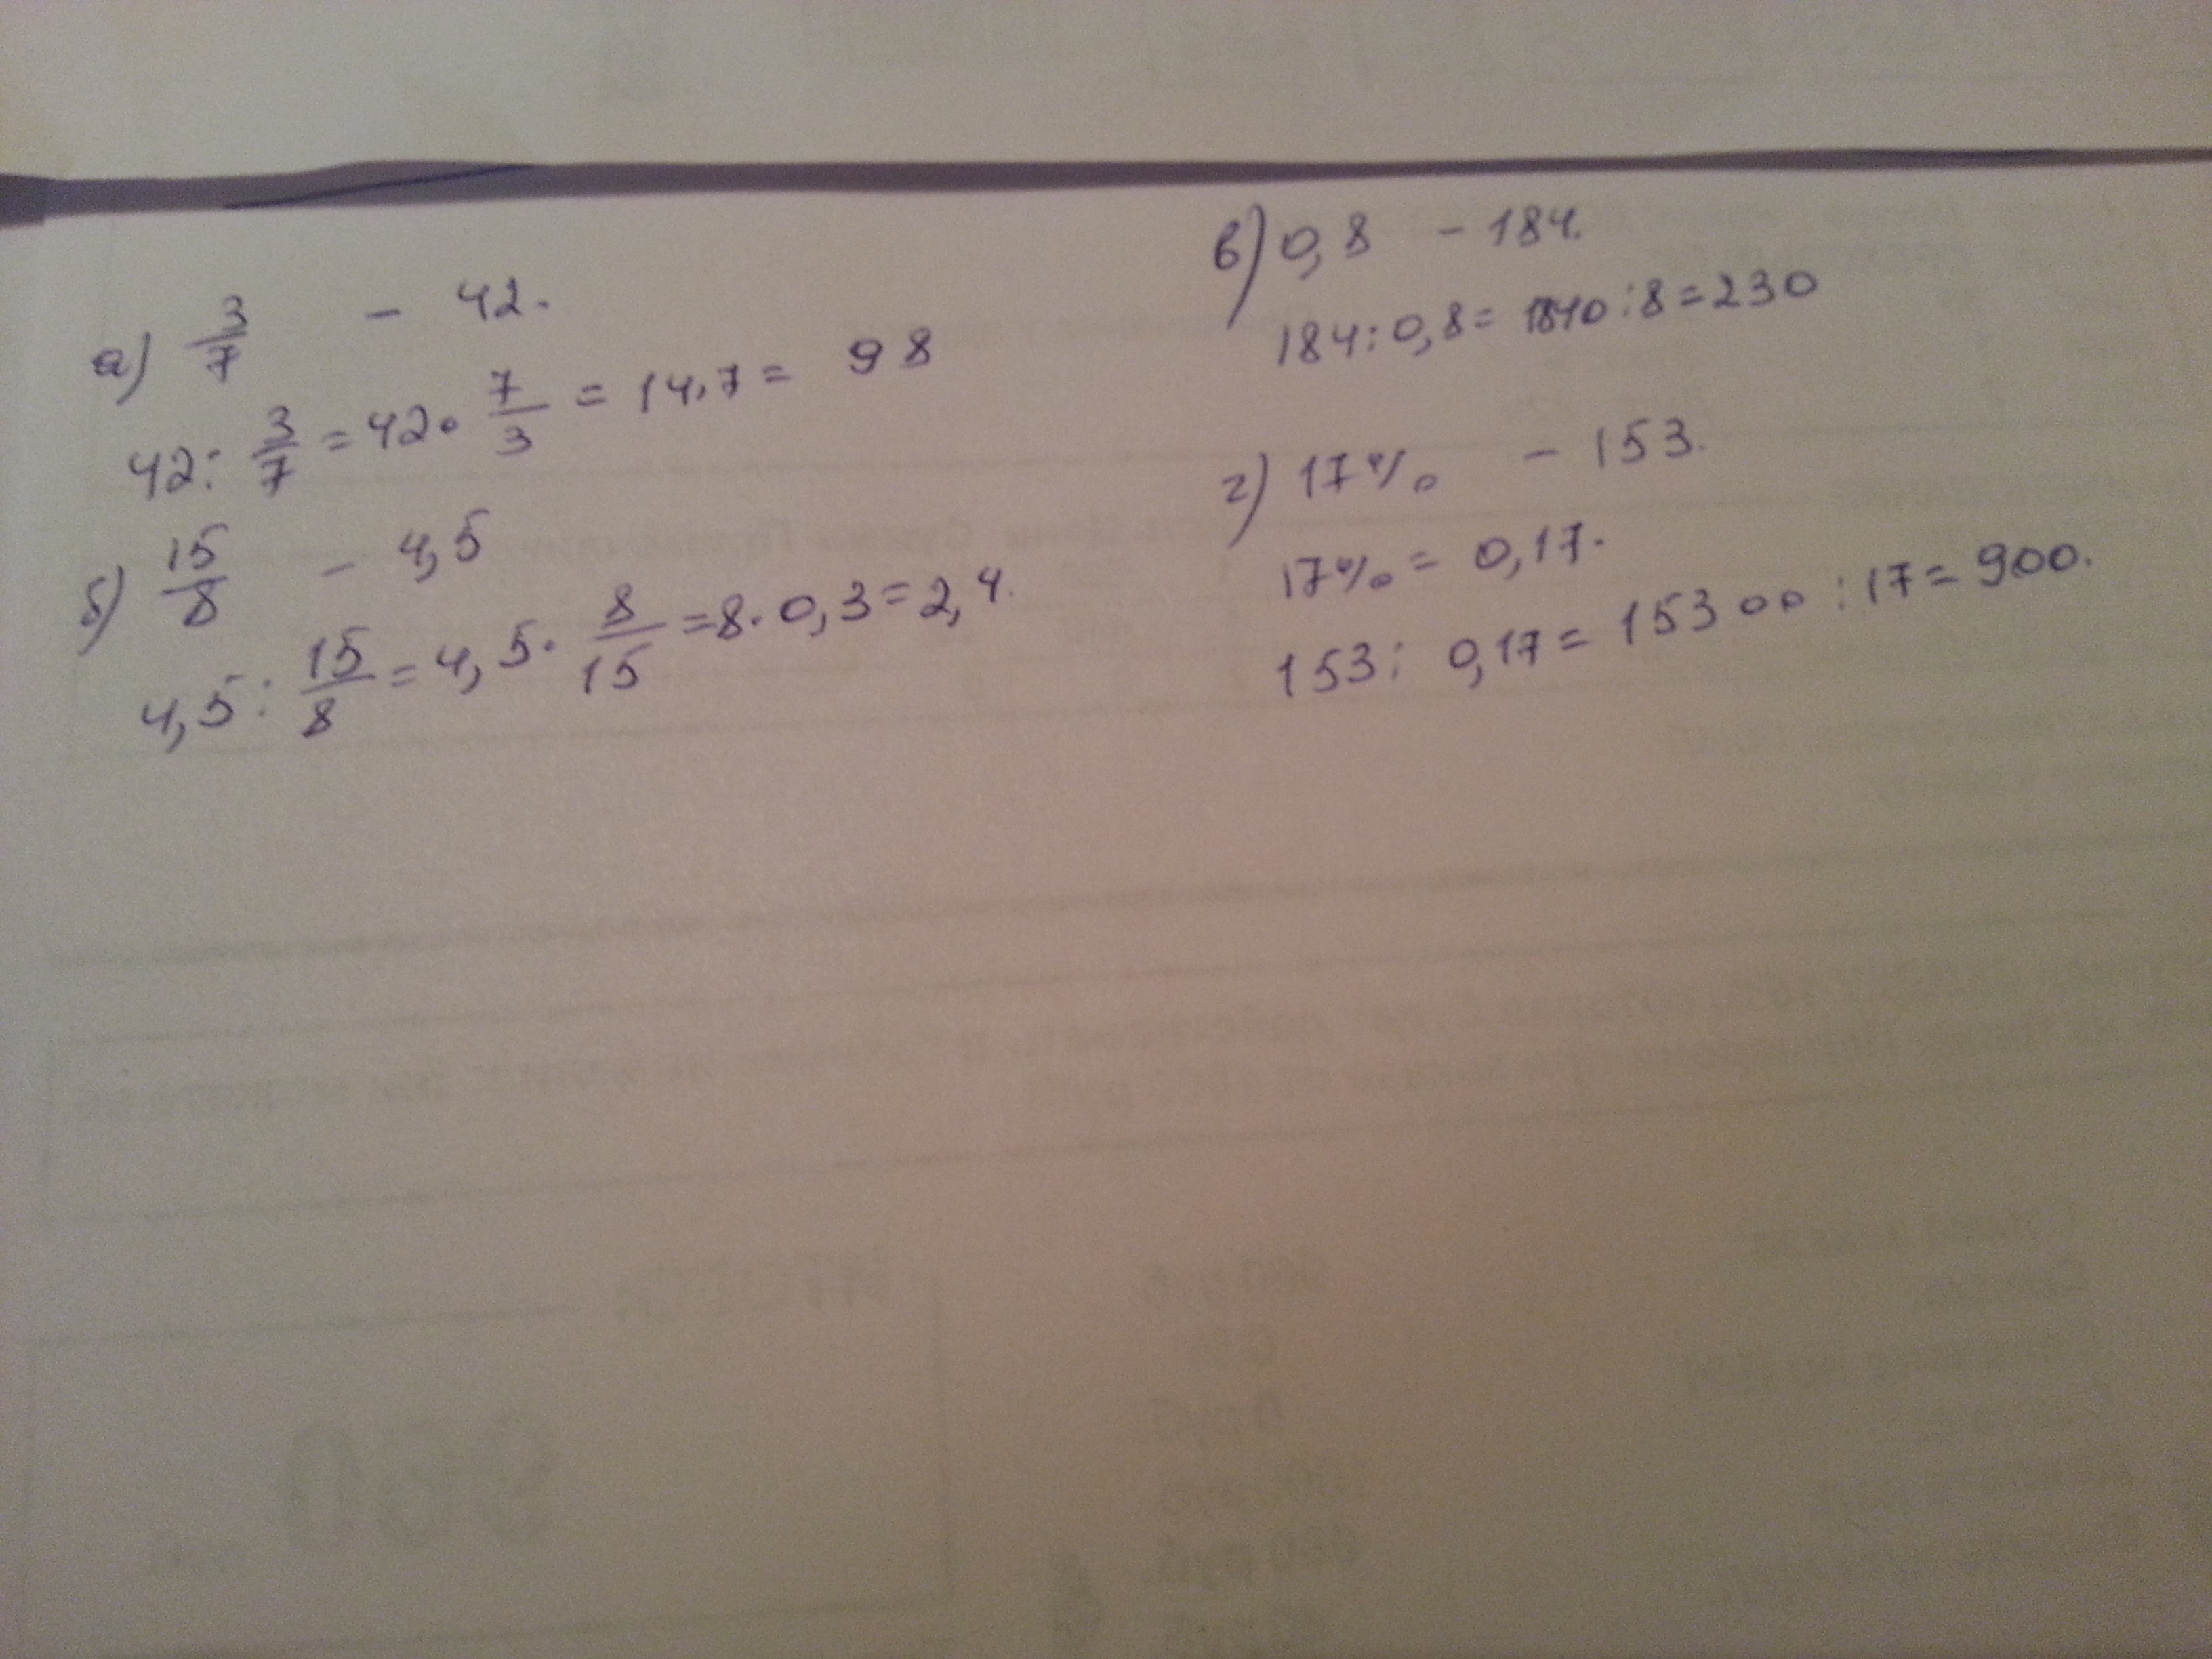 а) 3/7 - 42.
42 : 3/7 = 42 · 7/3 = 14 · 7 = 98
б) 15/8 - 4,5
4,5 : 15/8 = 4,5 · 8/15 = 8 · 0,3 = 2,4.
в) 0,8 - 184.
184 : 0,8 = 1840 : 8 = 230
г) 17% - 153.
17% = 0,17.
153 : 0,17 = 15300 : 17 = 900.